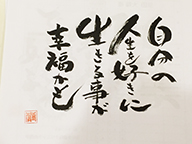 自分の
人生を好きに
生きる事が
幸福かと